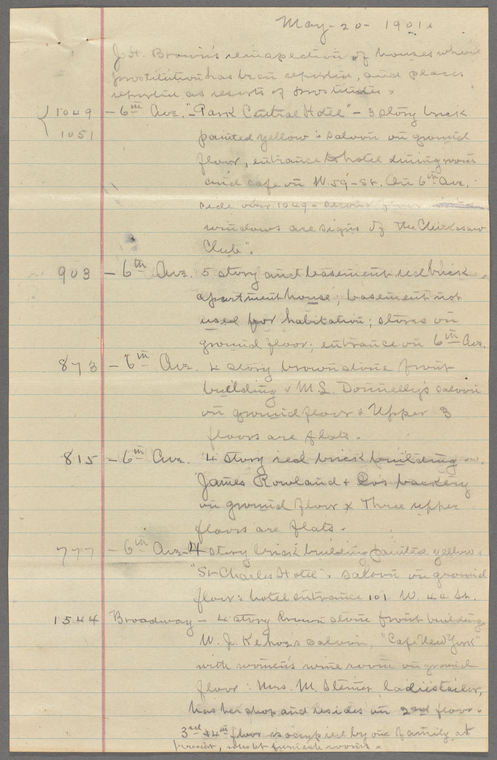 May - 20 - 1901.
J. H. Brown's reinspection of houses where
prostitution has been reported, and places
reported as resorts of prostitutes.
1049 - 6th Ave. "Park Central Hotel" - 3 story brick
1051 painted yellow; saloon on ground
floor, entrance to hotel dining room
and cafe on W. 59 - St. On 6th Ave.
side over 1049 - second floor
windows are signs of the "Chickasaw
Club".
903 - 6th Ave. 5 story and basement red brick
apartment house; basement not
used for habitation; stores on
ground floor; entrance on 6th Ave.
873 - 6th Ave. 4 story brown stone front
building & M. L. Donnelly's saloon
on ground floor & Upper 3
floors are flats.
815 - 6th Ave. 4 story red brick building
James Rowland & Co's backery
on ground floor x Three upper
floors are flats.
777 - 6th Ave - 4 story brick building painted yellow
"St Charles Hotel". Saloon on ground
floor; hotel entrance 101 W. 44 St.
1544 Broadway - 4 story brown stone front building
W. J. Kehoe's saloon, "Cafe New York"
with women's wine room on ground
floor: Mrs. M. ladies tailor,
has her shop and resides on 2nd floor.
3rd & 4th floor is occupied by one family at
present, furnish rooms.